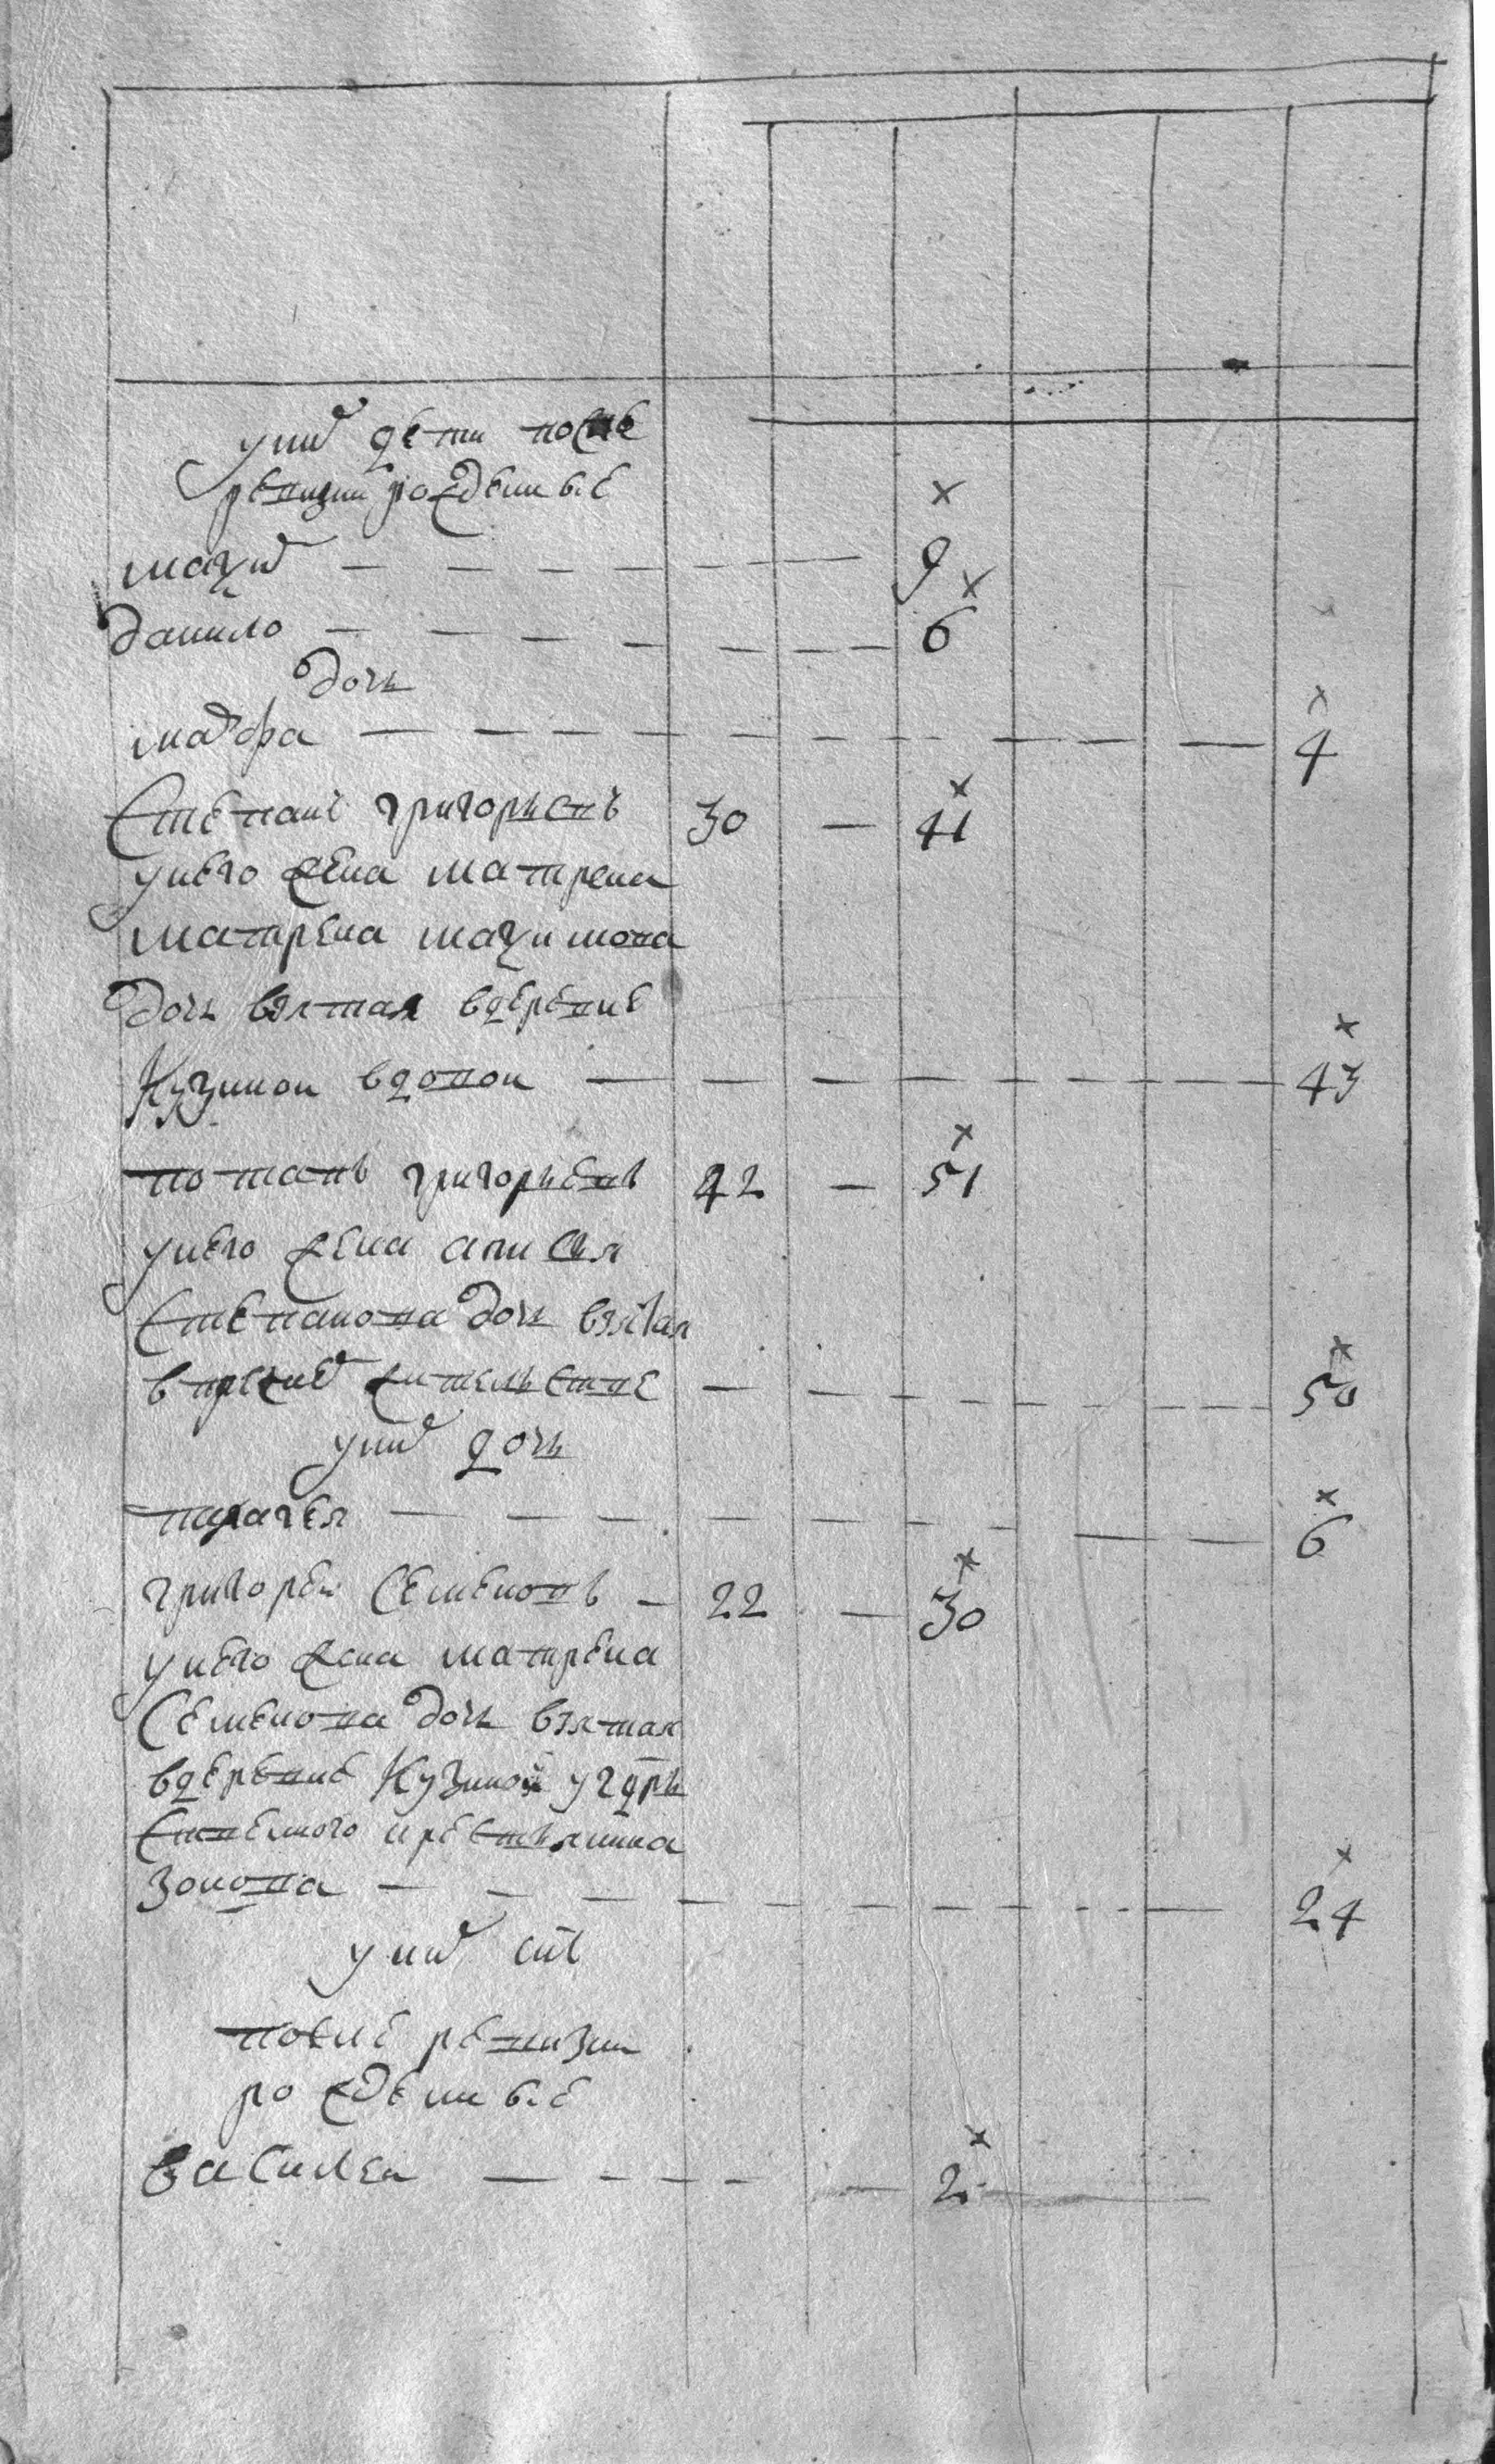 у них дети после
ревизии рожденные
×
максим — — — — — — 9
×
данило — — — — — — — 6
дочь
×
марфа — — — — — — — — — — 4
×
Степанъ григорьевъ 30 — 41
у него жена матрена
матрена максимова
дочь взятая вдеревне
×
Кузиной вдовой — — — — — — — — 43
×
потапъ григорьевъ 42 — 51
у него жена анисья
Степанова дочь взятая
×
впрежнем жительстве — — — — — — — 50
у них дочь
×
палагея — — — — — — — — — 6
×
григорей Семеновъ — 22 — 30
у него жена матрена
Семенова дочь взятая
вдеревне Кузиной у гдрь
ственного крестьянина
×
зонова — — — — — — — — — — 24
у них снъ
после ревизии
рожденные
×
василей — — — — — 2